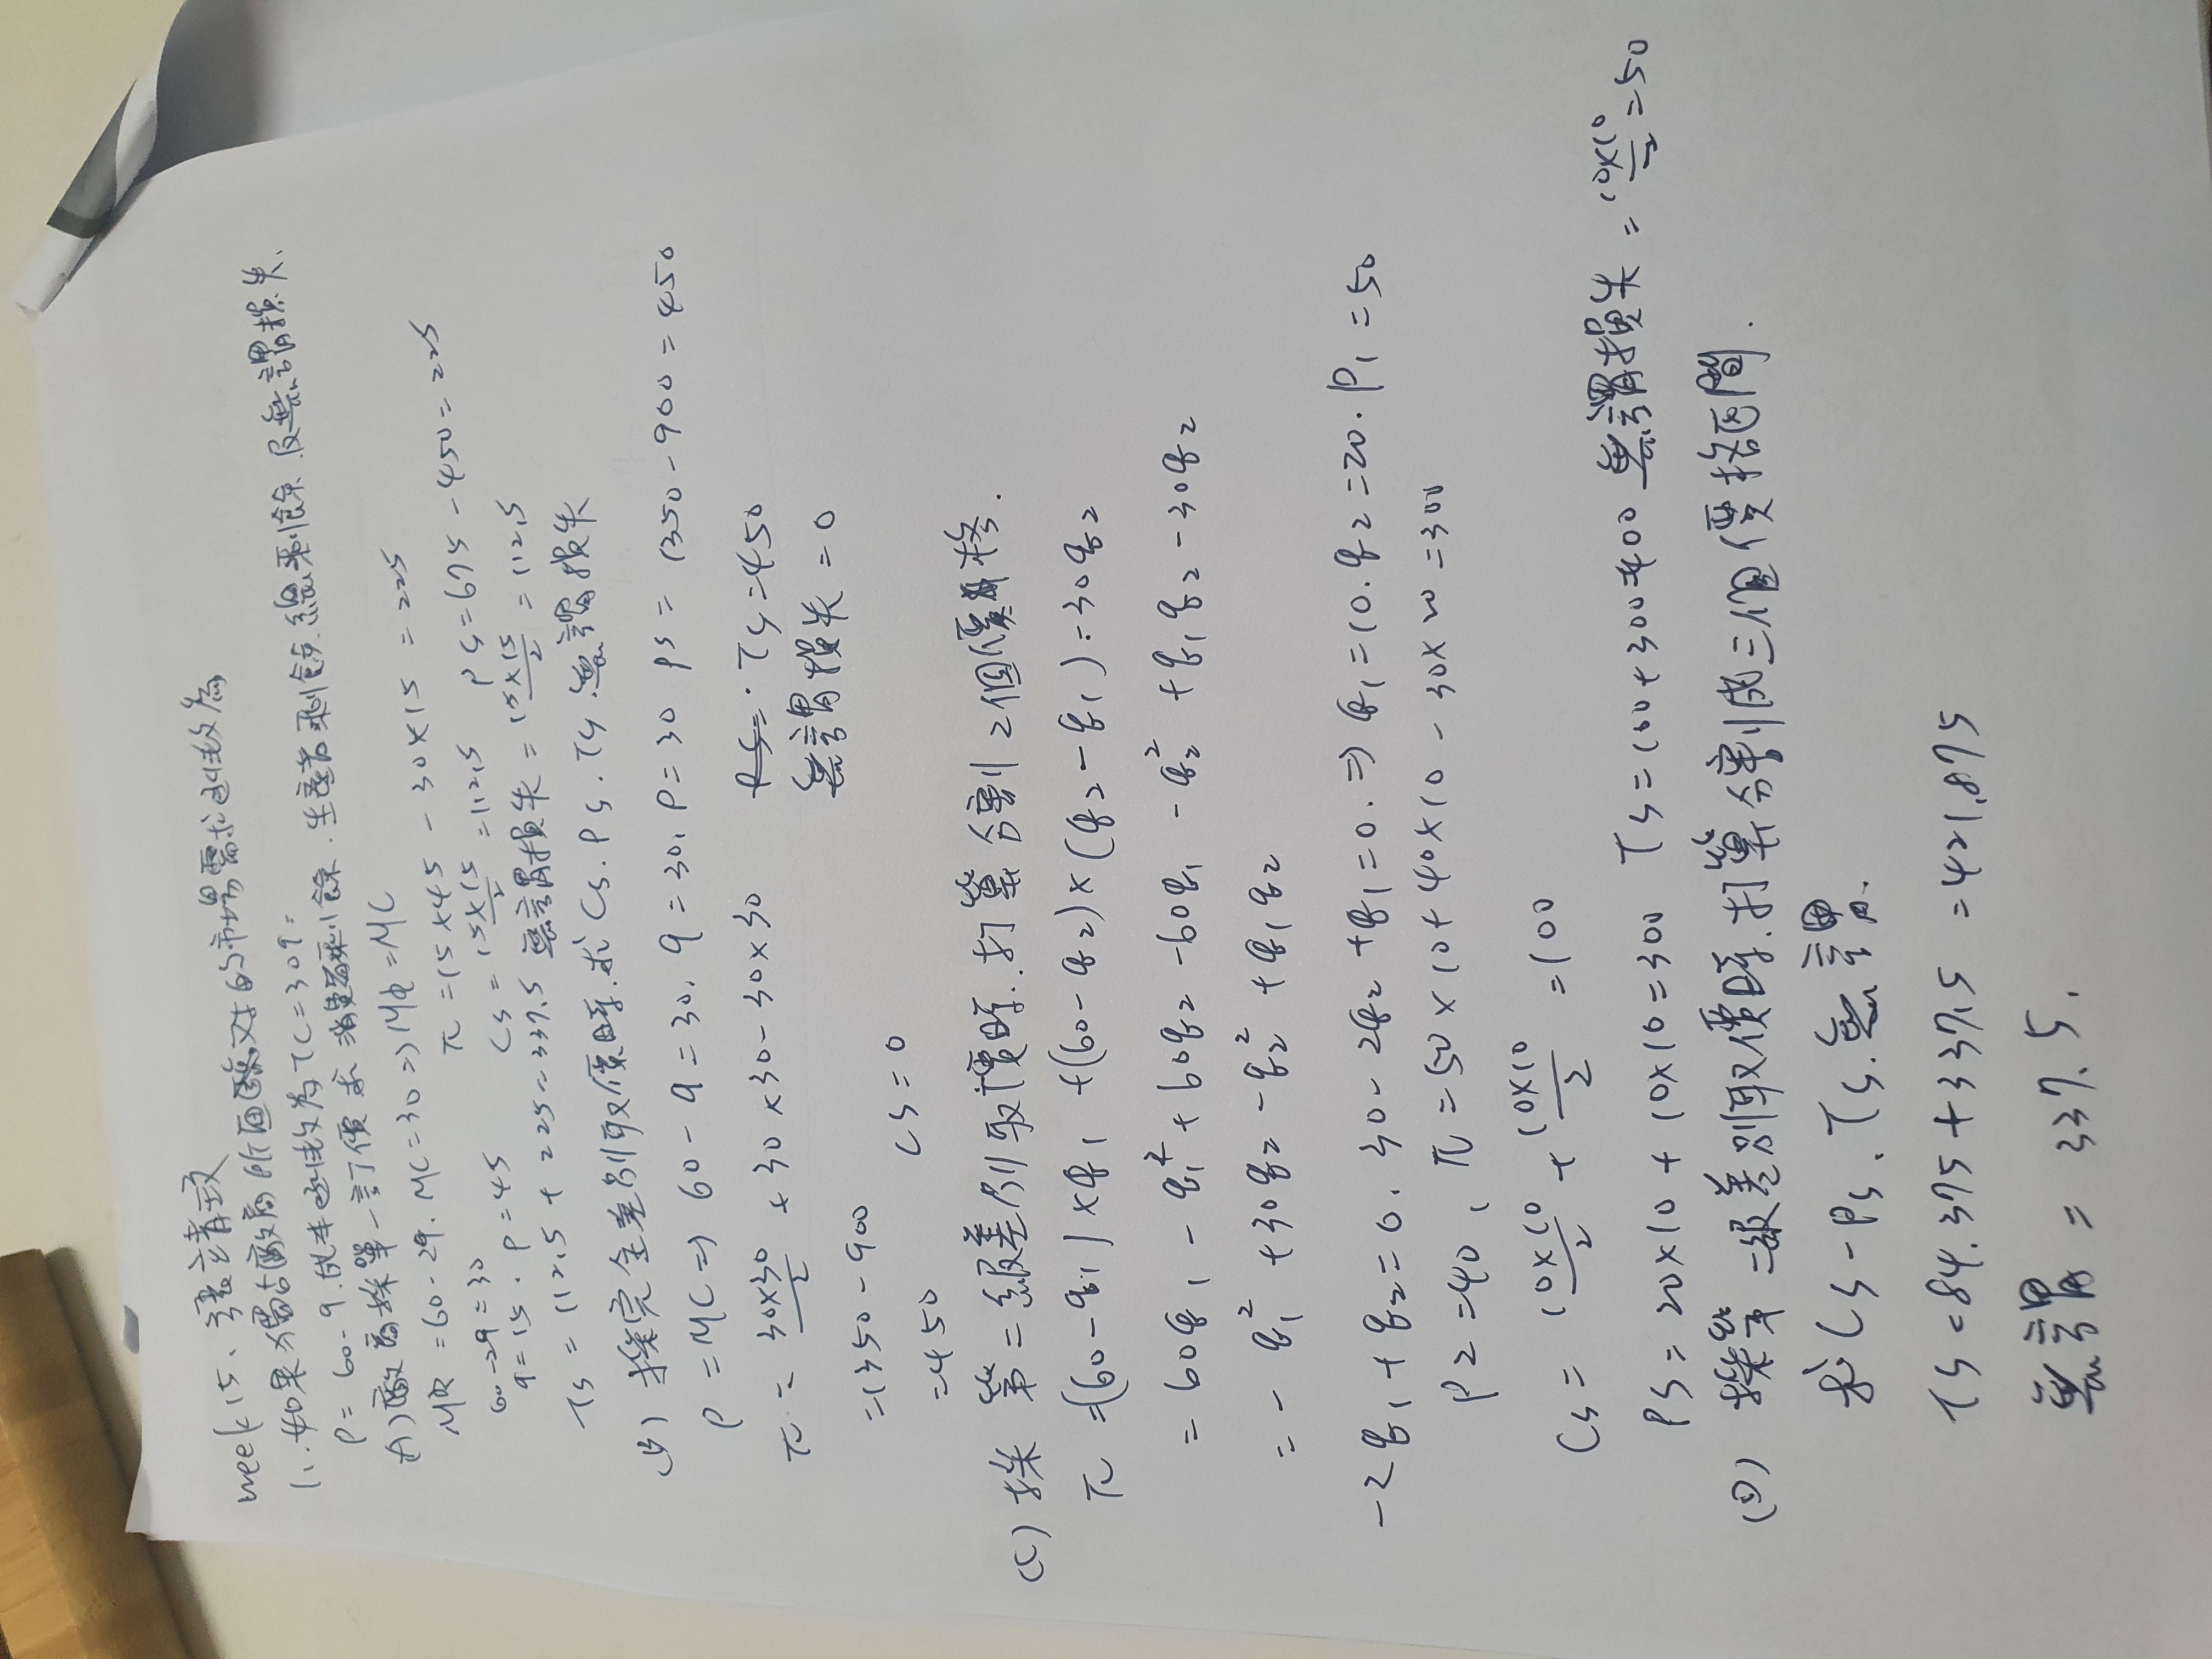 week 15、
1、如果獨占廠商所面臨对的市場需求函數為
P = 60-q. 成本函數為 TC=30q.
(A) 廠商採單一訂價 求 消費者剩餘. 生產者剩餘. 總剩餘 及無謂損失.
MR = 60-2q. MC=30 => MR=MC
60-2q=30 π=15×45 - 30×15 = 225
q=15. P=45 CS = 15×15/2 = 112.5 PS=675-450=225
TS = 112.5 + 225=337.5 無謂損失 = 15×15/2 = 112.5
(B) 採完全差別取價時. 求 CS. PS. TS. 無謂損失
P = MC => 60-q=30. q=30. P=30 PS = 1350-900=450
π = 30×30/2 + 30×30-30×30 TS=450
=1350-900 無謂損失=0
=450 CS=0
(C) 採 第二級差別取價時. 打算分割2個價格.
π =(60-q1)×q1 +(60-q2)×(q2-q1)-30q2
= 60q1 - q1² + 60q2 -60q1 - q2² + q1q2 -30q2
= - q1² +30q2 -q2² +q1q2
-2q1+q2=0. 30-2q2+q1=0. => q1=10. q2=20. P1=50
P2=40, π=50×10+40×10-30×20=300
CS= 10×10/2 + 10×10/2 =100
PS= 20×10 + 10×10=300 TS=100+300=400 無謂損失 = 10×10/2=50
(D) 採第二級差別取價時. 打算分割成三個價格區間.
求 CS-PS. TS. 無謂.
TS=84.375+337.5 =421.875
無謂 = 337.5.